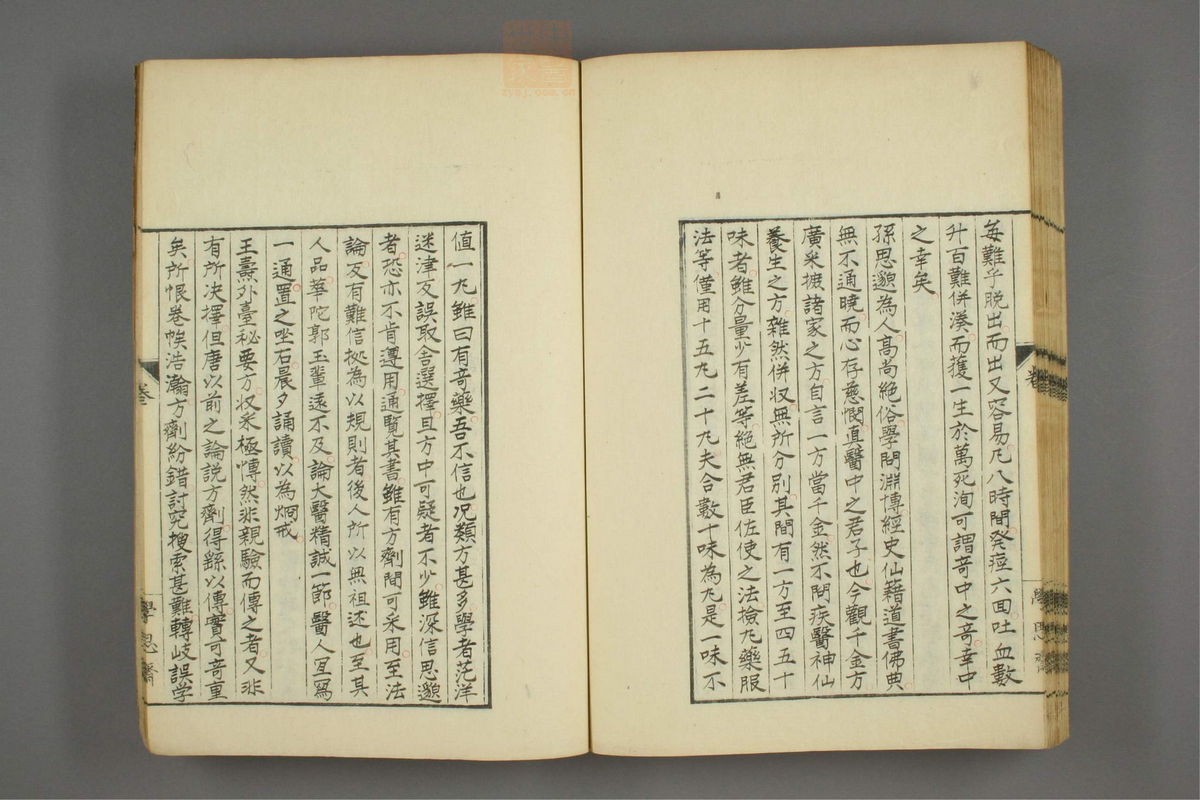 每難乎脱出而出又容易凡八時間發痙六回吐血數
升百難併湊而獲一生於萬死洵可謂竒中之竒幸中
之幸矣
孫思邈為人高尚絶俗學問淵博經史仙籍道書佛典
無不通曉而心存慈憫真醫中之君子也今觀千金方
廣采摭諸家之方自言一方當千金然不問疾醫神仙
養生之方雜然併収無所分別其間有一方至四五十
味者雖分量少有差等絶無君臣佐使之法撿凡藥服
法等僅用十五丸二十丸夫合數十味為丸是一味不
值一丸雖曰有竒藥吾不信也况類方甚多學者茫洋
迷津反誤取舎選擇且方中可疑者不少雖深信思邈
者恐亦不肯遵用通覧其書雖有方劑間可采用至法
論反有難信拠為以規則者後人所以無祖述也至其
人品華陀郭玉輩遠不及論大醫精誠一節醫人宜寫
一通置之坐右晨夕誦讀以為烱戒
王燾外臺秘要方収采極博然非親驗而傳之者又非
有所决擇但唐以前之論説方劑得繇以傳實可竒重
矣所恨巻帙浩瀚方劑紛錯討究搜索甚難轉岐誤学
巻
學思齋